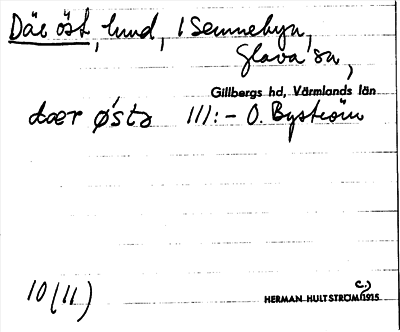 Där öst, lund, i Sennebyn,
Glava sn,
Gillbergs hd, Värmlands län
dær ø̍sta III:- O. Byström
10(11)
HERMAN HULTSTRÖM (c.) 1915